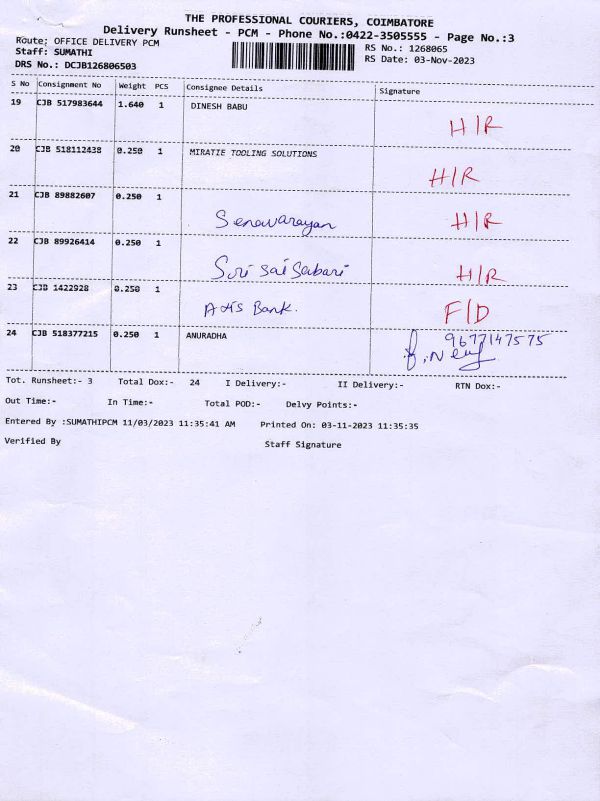 THE PROFESSIONAL COURIERS, COIMBATORE
Delivery Runsheet - PCM - Phone No.:0422-3505555 - Page No.:3
Route; OFFICE DELIVERY PCM
RS No.: 1268065
Staff: SUMATHI
RS Date: 03-Nov-2023
DRS No.: DCJB126806503
S No Consignment No Weight PCS Consignee Details Signature
19 CJB 517983644 1.640 1 DINESH BABU
H/R
20 CJB 518112438 0.250 1 MIRATIE TOOLING SOLUTIONS
H/R
21 CJB 89882607 0.250 1
H/R
22 CJB 89926414 0.250 1
Sri Sai Sabari H/R
23 CJB 1422928 0.250 1
Axis Bank. F/D
24 CJB 518377215 0.250 1 ANURADHA
9677147575
Tot. Runsheet:- 3 Total Dox:- 24 I Delivery:- II Delivery:- RTN Dox:-
Out Time:- In Time:- Total POD:- Delvy Points:-
Entered By :SUMATHIPCM 11/03/2023 11:35:41 AM Printed On: 03-11-2023 11:35:35
Verified By Staff Signature